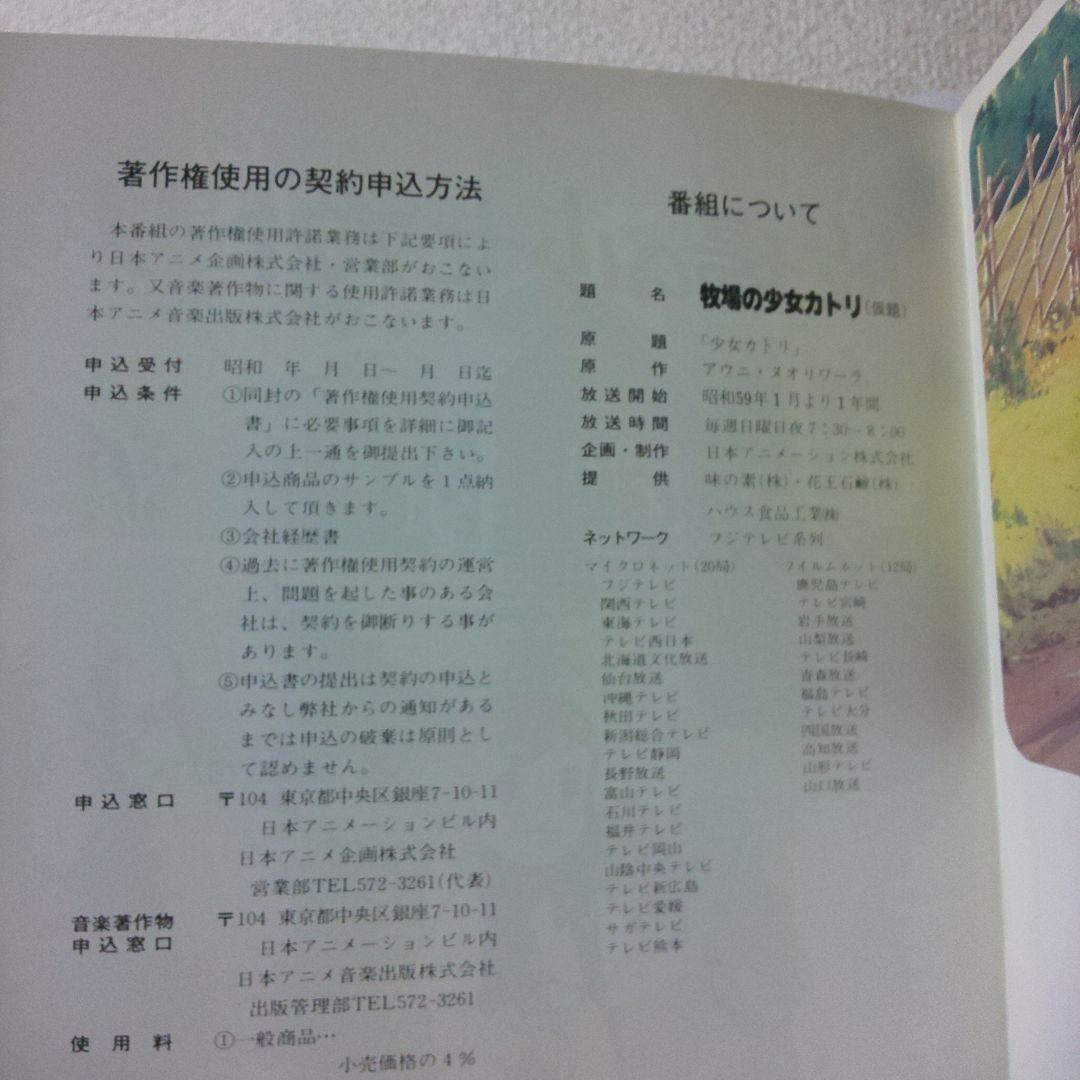 著作権使用の契約申込方法
本番組の著作権使用許諾業務は下記要項によ
り日本アニメ企画株式会社・営業部がおこない
ます。又音楽著作物に関する使用許諾業務は日
本アニメ音楽出版株式会社がおこないます。
申込受付 昭和 年 月 日〜 月 日迄
申込条件 ①同封の「著作権使用契約申込
書」に必要事項を詳細に御記
入の上一通を御提出下さい。
②申込商品のサンプルを1点納
入して頂きます。
③会社経歴書
④過去に著作権使用契約の運営
上、問題を起した事のある会
社は、契約を御断りする事が
あります。
⑤申込書の提出は契約の申込と
みなし弊社からの通知がある
までは申込の破棄は原則とし
て認めません。
申込窓口 〒104 東京都中央区銀座7-10-11
日本アニメーションビル内
日本アニメ企画株式会社
営業部TEL572-3261(代表)
音楽著作物
申込窓口 〒104 東京都中央区銀座7-10-11
日本アニメーションビル内
日本アニメ音楽出版株式会社
出版管理部TEL572-3261
使用料 ①一般商品…
小売価格の4%
番組について
題名 牧場の少女カトリ(仮題)
原題 「少女カトリ」
原作 アウニ・ヌオリワーラ
放送開始 昭和59年1月より1年間
放送時間 毎週日曜日夜7:30〜8:00
企画・制作 日本アニメーション株式会社
提供 味の素(株)・花王石鹸(株)
ハウス食品工業㈱
ネットワーク フジテレビ系列
マイクロネット(20局)
フジテレビ
関西テレビ
東海テレビ
テレビ西日本
北海道文化放送
仙台放送
沖縄テレビ
秋田テレビ
新潟総合テレビ
テレビ静岡
長野放送
富山テレビ
石川テレビ
福井テレビ
テレビ岡山
山陰中央テレビ
テレビ新広島
テレビ愛媛
サガテレビ
テレビ熊本
フイルムネット(12局)
鹿児島テレビ
テレビ宮崎
岩手放送
山梨放送
テレビ長崎
青森放送
福島テレビ
テレビ大分
四国放送
高知放送
山形テレビ
山口放送